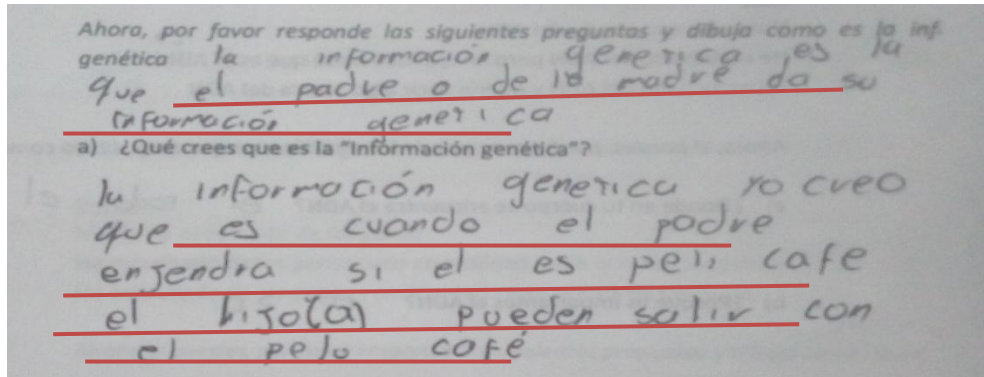 Ahora, por favor responde las siguientes preguntas y dibuja cómo es la inf.
genética la información genetica es la
que el padre o de la madre da su
información genetica
a) ¿Qué crees que es la "Información genética"?
la información genetica yo creo
que es cuando el padre
enjendra si el es peli cafe
el hijo(a) pueden salir con
el pelo café